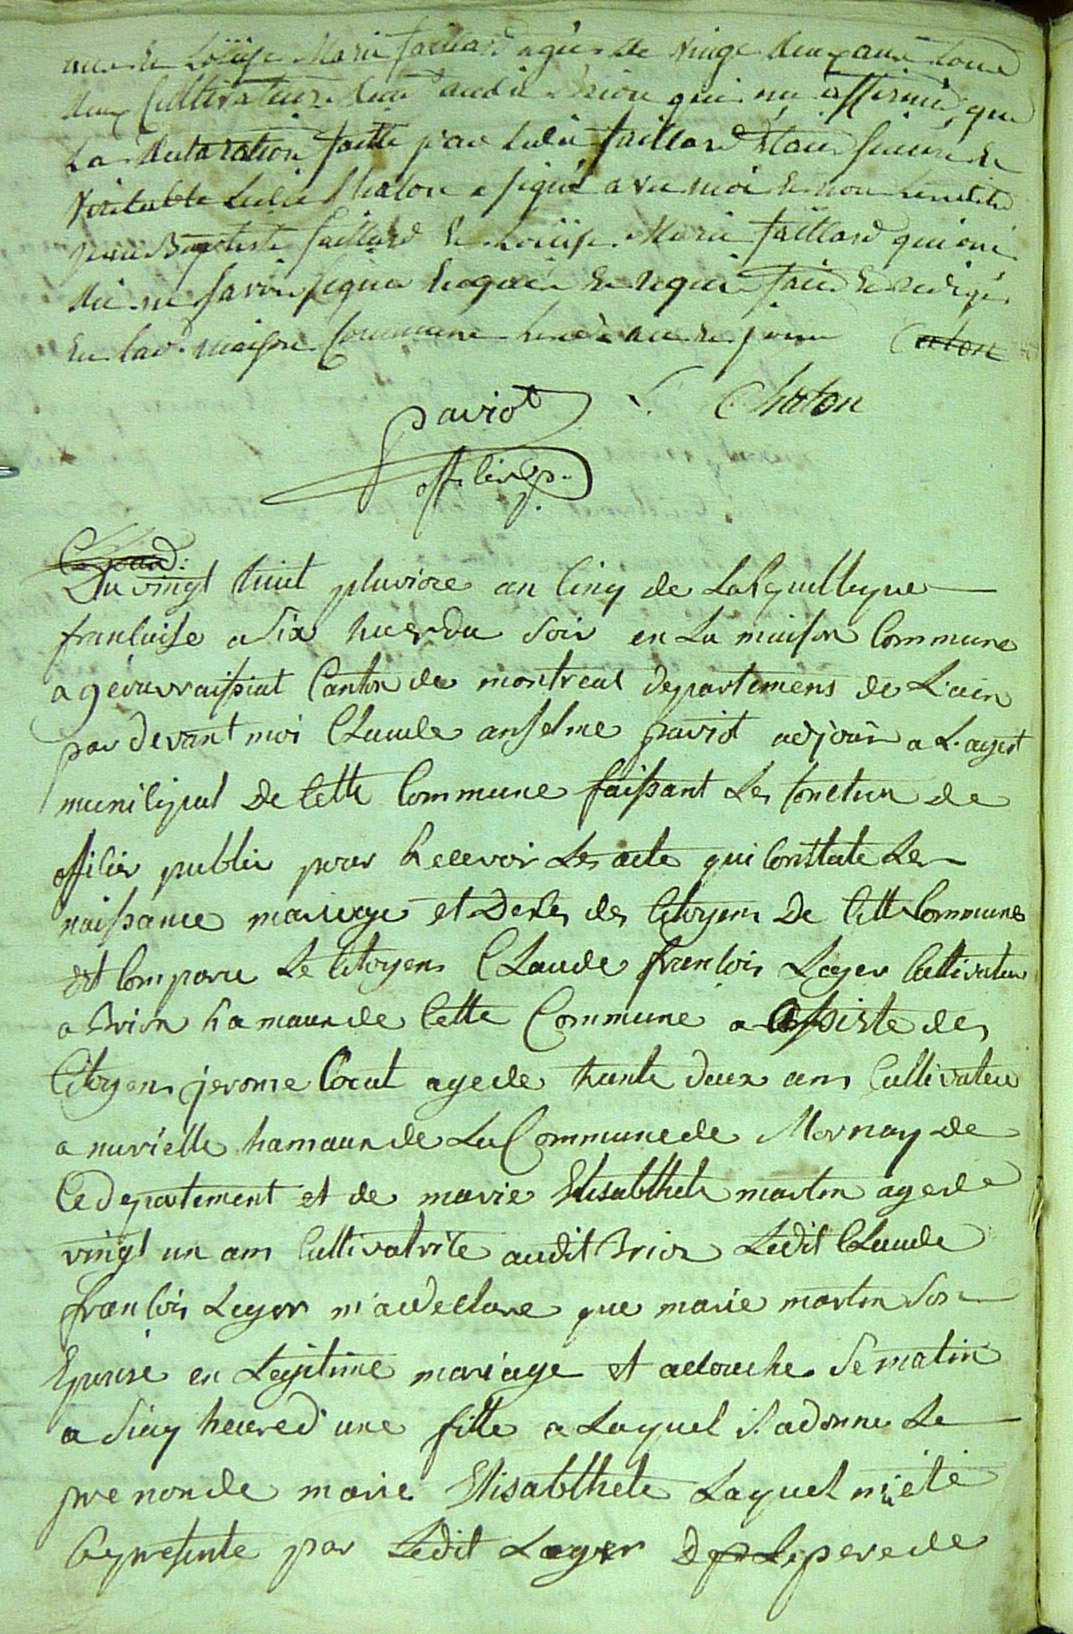 Loüise Marie faillard agée de vingt deux ans tous
deux Cultivateur audit Brion qui m'a affirmé que
La declaration faitte par Ledit faillard Etait sincere Et
Veritable Ledit Chaton a signé avec moi Et non
Baptiste faillard Et Loüise Marie faillard qui ont
dit ne savoir signer Enquis Et requis fait Et redigé
En lad. maison Commune Les an Et jour Caton
Chaton
paviot
officier p.
Du vingt huit pluviose an Cinq de La Republique
francaise a Six heur du Soir en La maison Commune
a geovraissiat Canton de montreal departemens de L'ain
par devant moi Claude anselme paviot adjoin a L'agent
municipal De Cette Commune faissant Les fonction de
officier public pour Recevoir Les acte qui Constate Les
naissance mariage et Deses des Citoyens De Cette Commune
Est Comparu Le Citoyens Claude francois Leger Cultivateur
a Brion hamaux de Cette Commune assiste des
Citoyens jerome Cocat agede trante deux ans Cultivateur
a hamaux de La Commune de Mornay de
Ce departement et de marie Elisabthete martin agede
vingt un ans Cultivatrice audit Brion Ledit Claude
francois Leger m'a declare que marie martin Son
Epouse en Legitime mariage et acouche Se matin
a Sinq heure d'une fille a Laquel il a donne Le
prenon de marie Elisabthete Laquel m'a été
Representé par Ledit Leger Le pere de